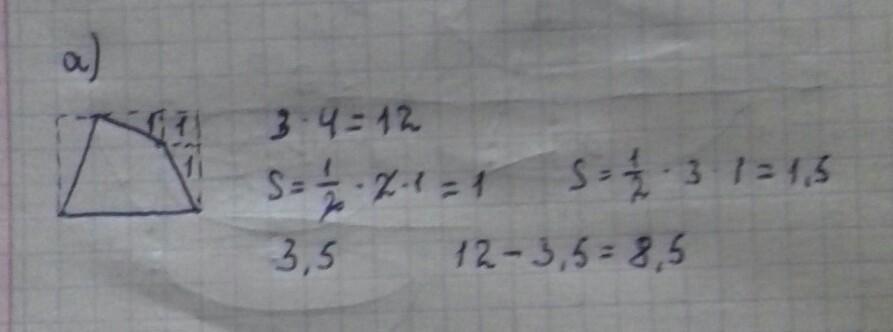 а)
1 1
1
3 · 4 = 12
S = 1/2 · 2 · 1 = 1 S = 1/2 · 3 · 1 = 1,5
3,5 12 - 3,5 = 8,5